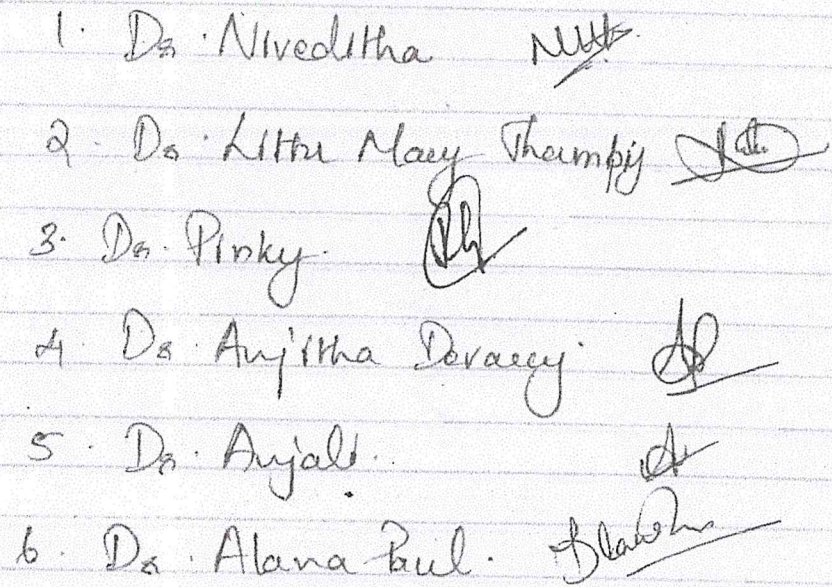 1. Dr. Niveditha
2. Dr. Littu Mary Thampy
3. Dr. Pinky.
4 Dr. Anjitha Devassy
5. Dr. Anjali.
6. Dr. Alana Paul.